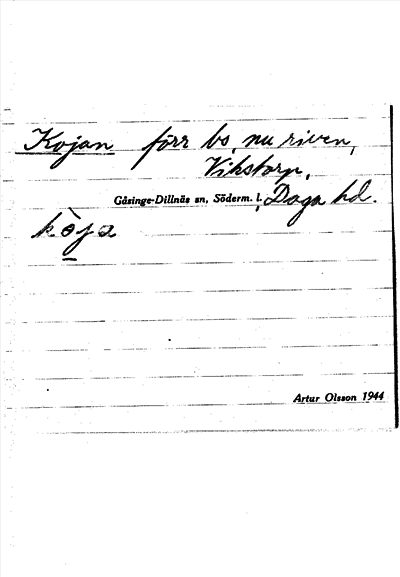 Kojan förr bs, nu riven,
Vikstorp,
Gåsinge-Dillnäs sn, Söderm. l., Daga hd.
kòja
Artur Olsson 1944